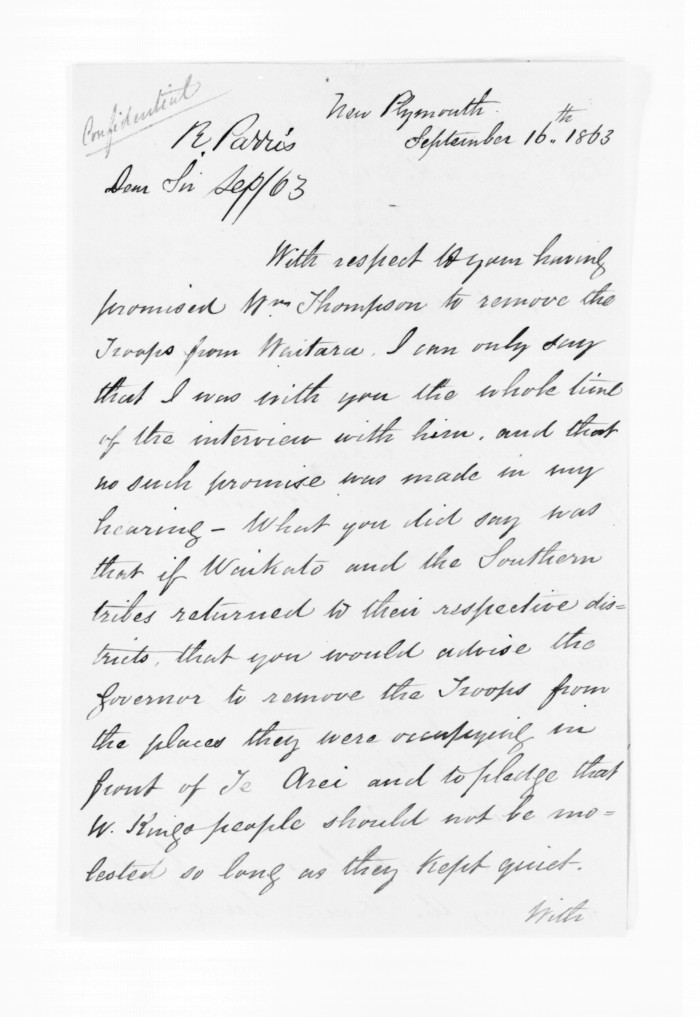 Confidential
New Plymouth.
September 16th. 1863
R. Parris
Sep/63
Dear Sir
With respect to your having
promised Wm Thompson to remove the
Troops from Waitara. I can only say
that I was with you the whole time
of the interview with him, and that
no such promise was made in my
hearing - What you did say was
that if Waikato and the Southern
tribes returned to their respective dis=
tricts, that you would advise the
Governor to remove the Troops from
the places they were occupying in
front of Te Arei and to pledge that
W. Kings people should not be mo-
lested so long as they kept quiet.
With